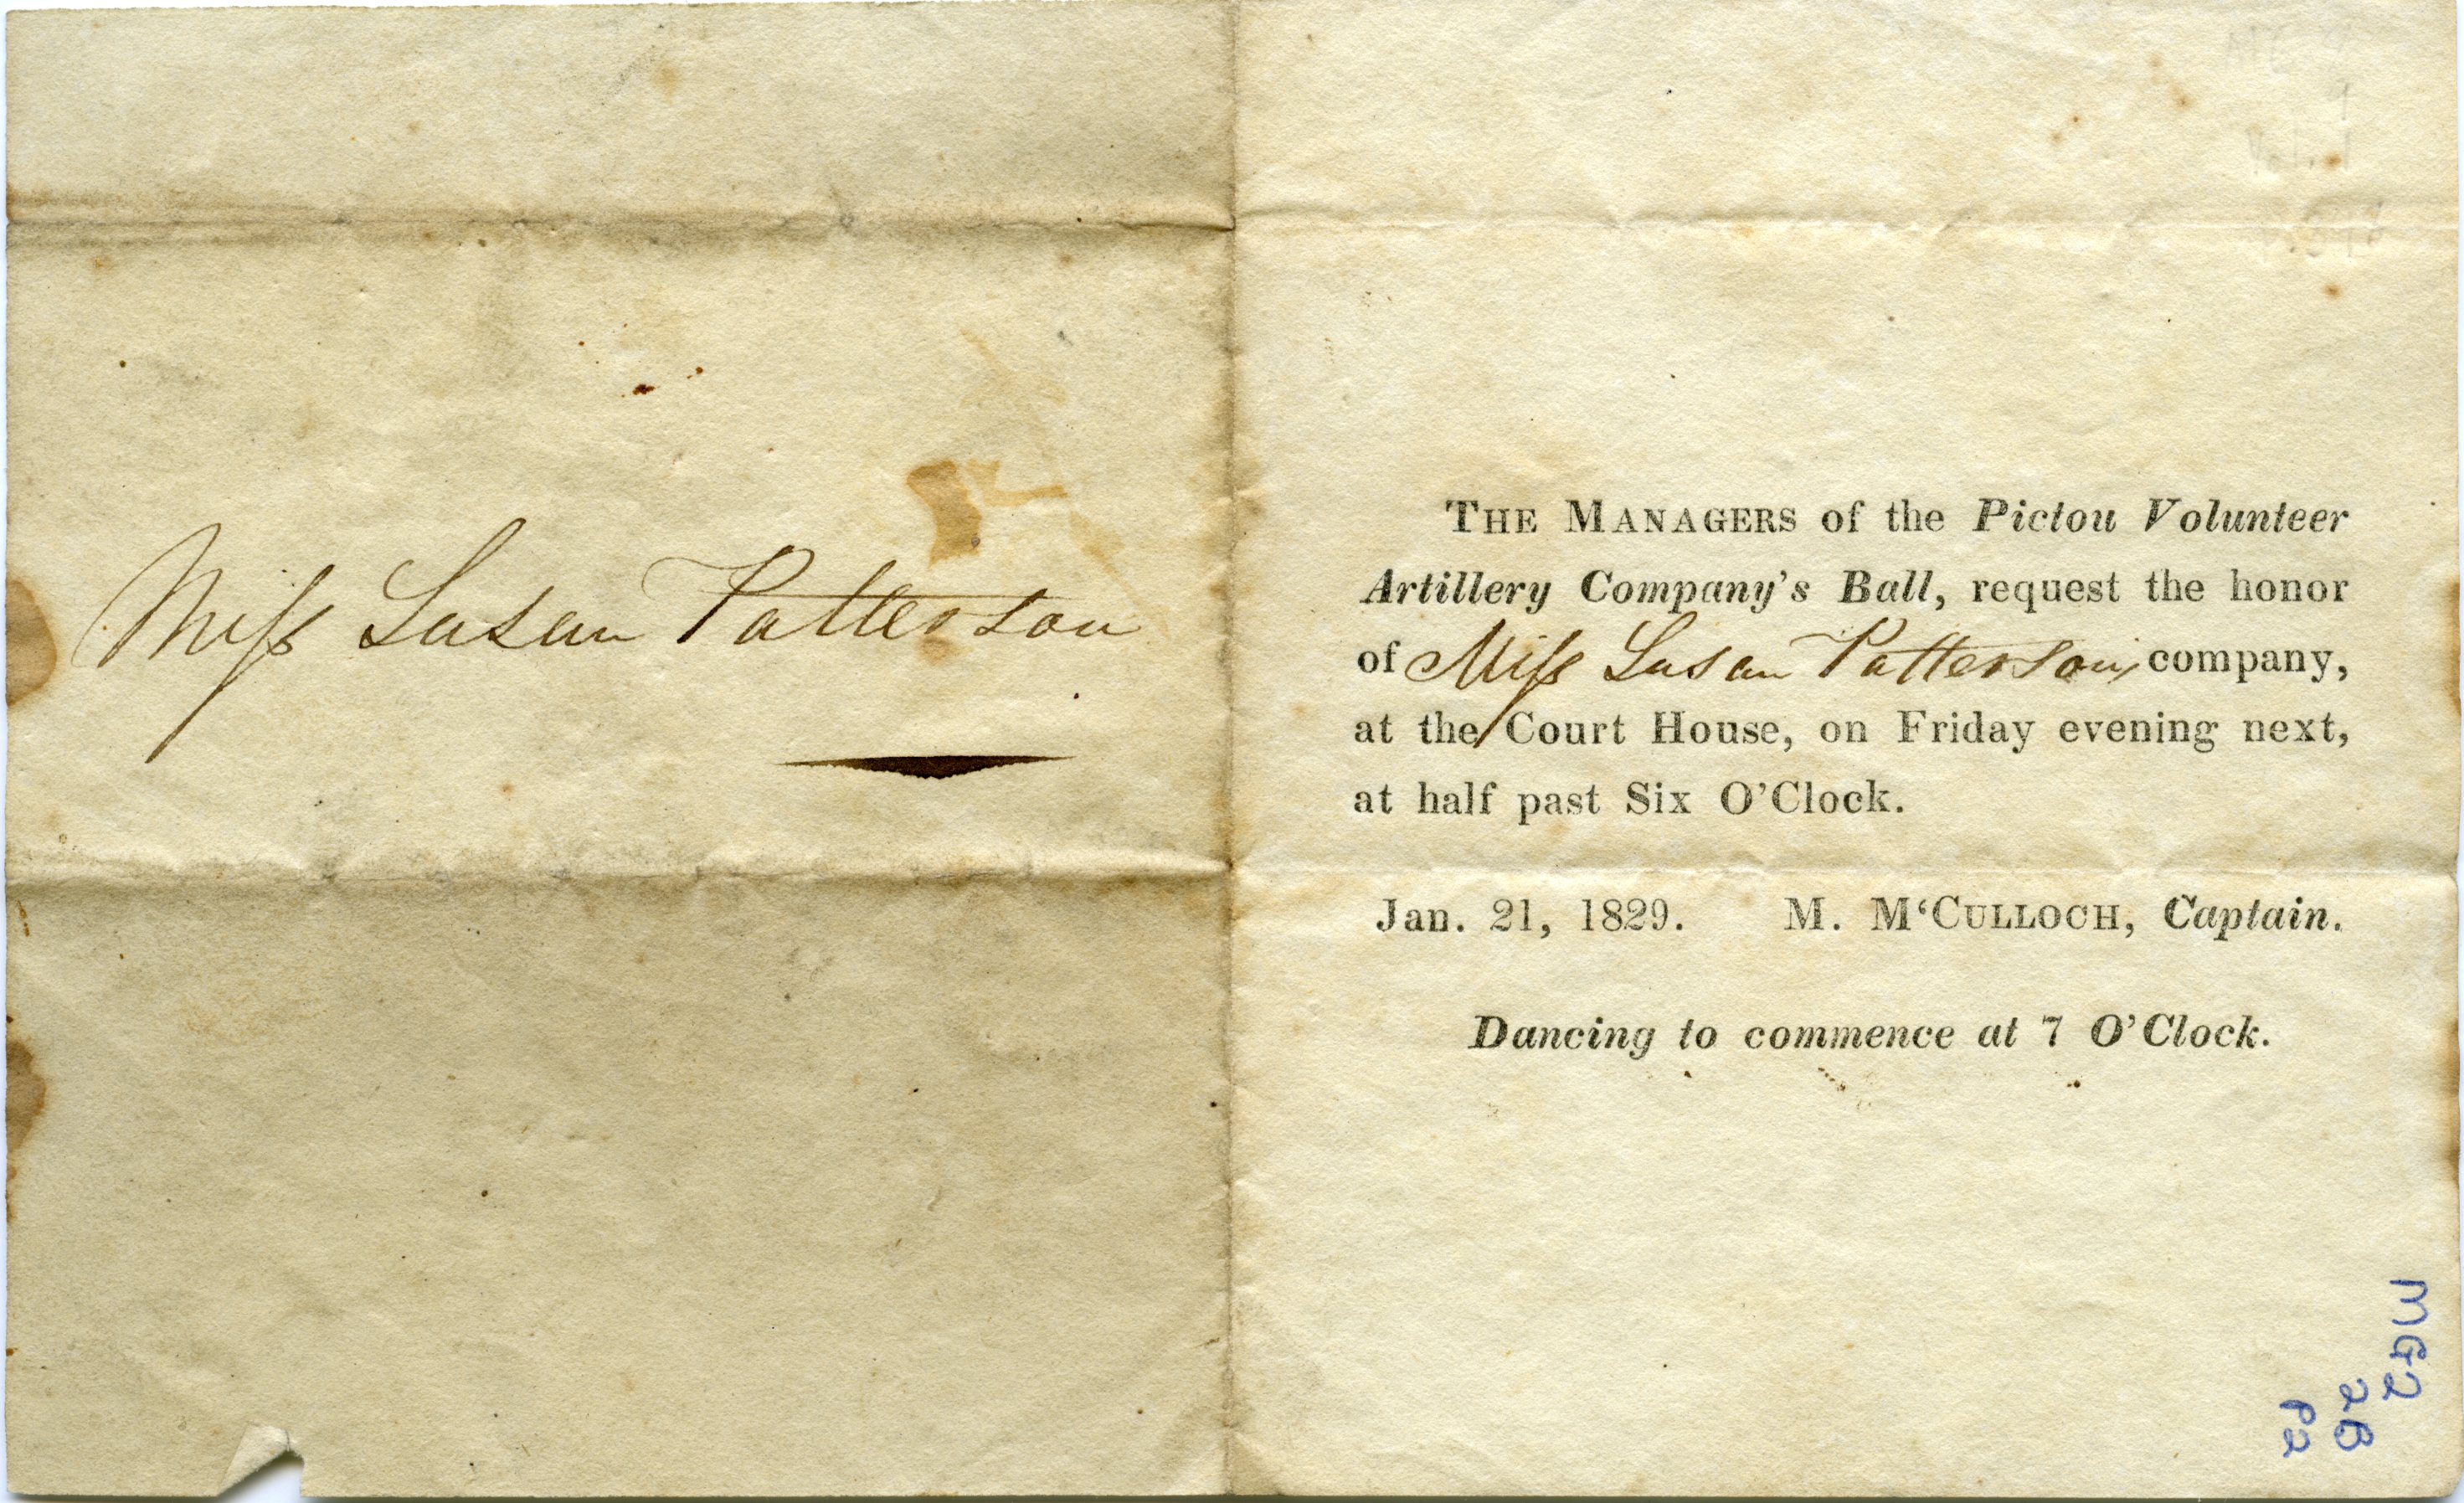 Miſs Susan Patterson
THE MANAGERS of the Pictou Volunteer
Artillery Company's Ball, request the honor
of Miſs Susan Patterson's company,
at the Court House, on Friday evening next,
at half past Six O'Clock.
Jan. 21, 1829. M. M‘CULLOCH, Captain.
Dancing to commence at 7 O'Clock.
MG2
2B
P2